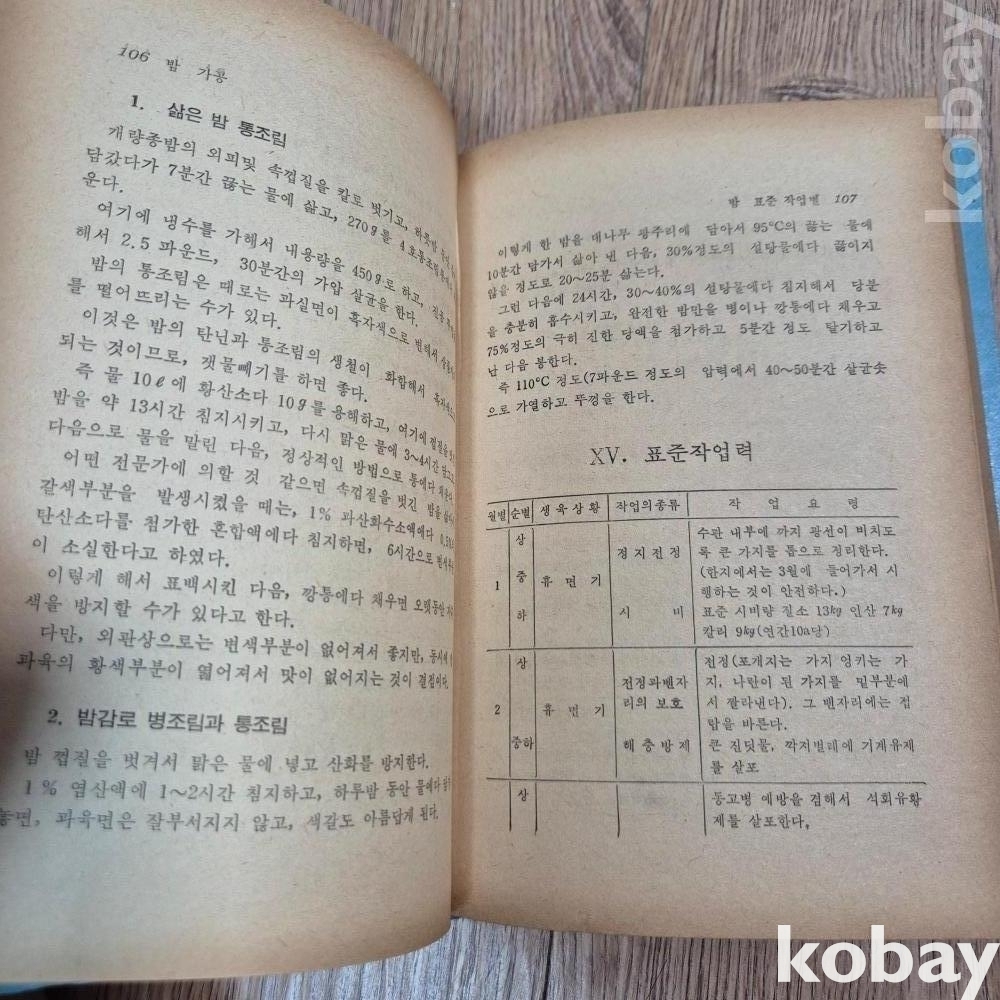 106 밤 가공
1. 삶은 밤 통조림
개량종밤의 외피및 속껍질을 칼로 벗기고, 하룻밤
담갔다가 7분간 끓는 물에 삶고, 270g를 4호통조림
운다.
여기에 냉수를 가해서 내용량을 450g로 하고,
해서 2.5 파운드, 30분간의 가압 살균을 한다.
밤의 통조림은 때로는 과실면이 흑자색으로 변해서
를 떨어뜨리는 수가 있다.
이것은 밤의 탄닌과 통조림의 생철이 화합해서
되는 것이므로, 갯물빼기를 하면 좋다.
즉 물 10ℓ에 황산소다 10g를 용해하고, 여기에 껍질을
밤을 약 13시간 침지시키고, 다시 맑은 물에 3~4시간 담그고
다음으로 물을 말린 다음, 정상적인 방법으로 통에다
어떤 전문가에 의할 것 같으면 속껍질을 벗긴 밤을
갈색부분을 발생시켰을 때는, 1% 과산화수소액에다
탄산소다를 첨가한 혼합액에다 침지하면, 6시간으로
이 소실한다고 하였다.
이렇게 해서 표백시킨 다음, 깡통에다 채우면 오랫동안
색을 방지할 수가 있다고 한다.
다만, 외관상으로는 변색부분이 없어져서 좋지만, 동시에
과육의 황색부분이 엷어져서 맛이 없어지는 것이 결점이다.
2. 밤감로 병조림과 통조림
밤 껍질을 벗겨서 맑은 물에 넣고 산화를 방지한다.
1% 염산액에 1~2시간 침지하고, 하루밤 동안 물에다
놓면, 과육면은 잘부서지지 않고, 색갈도 아름답게 된다.
밤 표준 작업별 107
이렇게 한 밤을 대나무 광주리에 담아서 95°C의 끓는 물에
10분간 담가서 삶아 낸 다음, 30%정도의 설탕물에다 끓이지
않을 정도로 20~25분 삶는다.
그런 다음에 24시간, 30~40%의 설탕물에다 침지해서 당분
을 충분히 흡수시키고, 완전한 밤만을 병이나 깡통에다 채우고
75%정도의 극히 진한 당액을 첨가하고 5분간 정도 탈기하고
난 다음 봉한다.
즉 110°C 정도(7파운드 정도의 압력에서 40~50분간 살균솟
으로 가열하고 뚜껑을 한다.
XV. 표준작업력
월별 순별 생육상황 작업의종류 작업요령
상 수관 내부에 까지 광선이 비치도
정지전정 록 큰 가지를 톱으로 정리한다.
1 중 휴면기 (한지에서는 3월에 들어가서 시
행하는 것이 안전하다.)
하 시비 표준 시비량 질소 13kg 인산 7kg
칼리 9kg(연간10a당)
상 전정(포개지는 가지 엉키는 가
전정과벤자 지, 나란이 된 가지를 밑부분에
2 휴면기 리의 보호 서 짤라낸다). 그 벤자리에는 접
랍을 바른다.
중하 해충방제 큰 진딧물, 깍지벌레에 기계유제
를 살포
상 동고병 예방을 겸해서 석회유황
제를 살포한다,
kobay
kobay